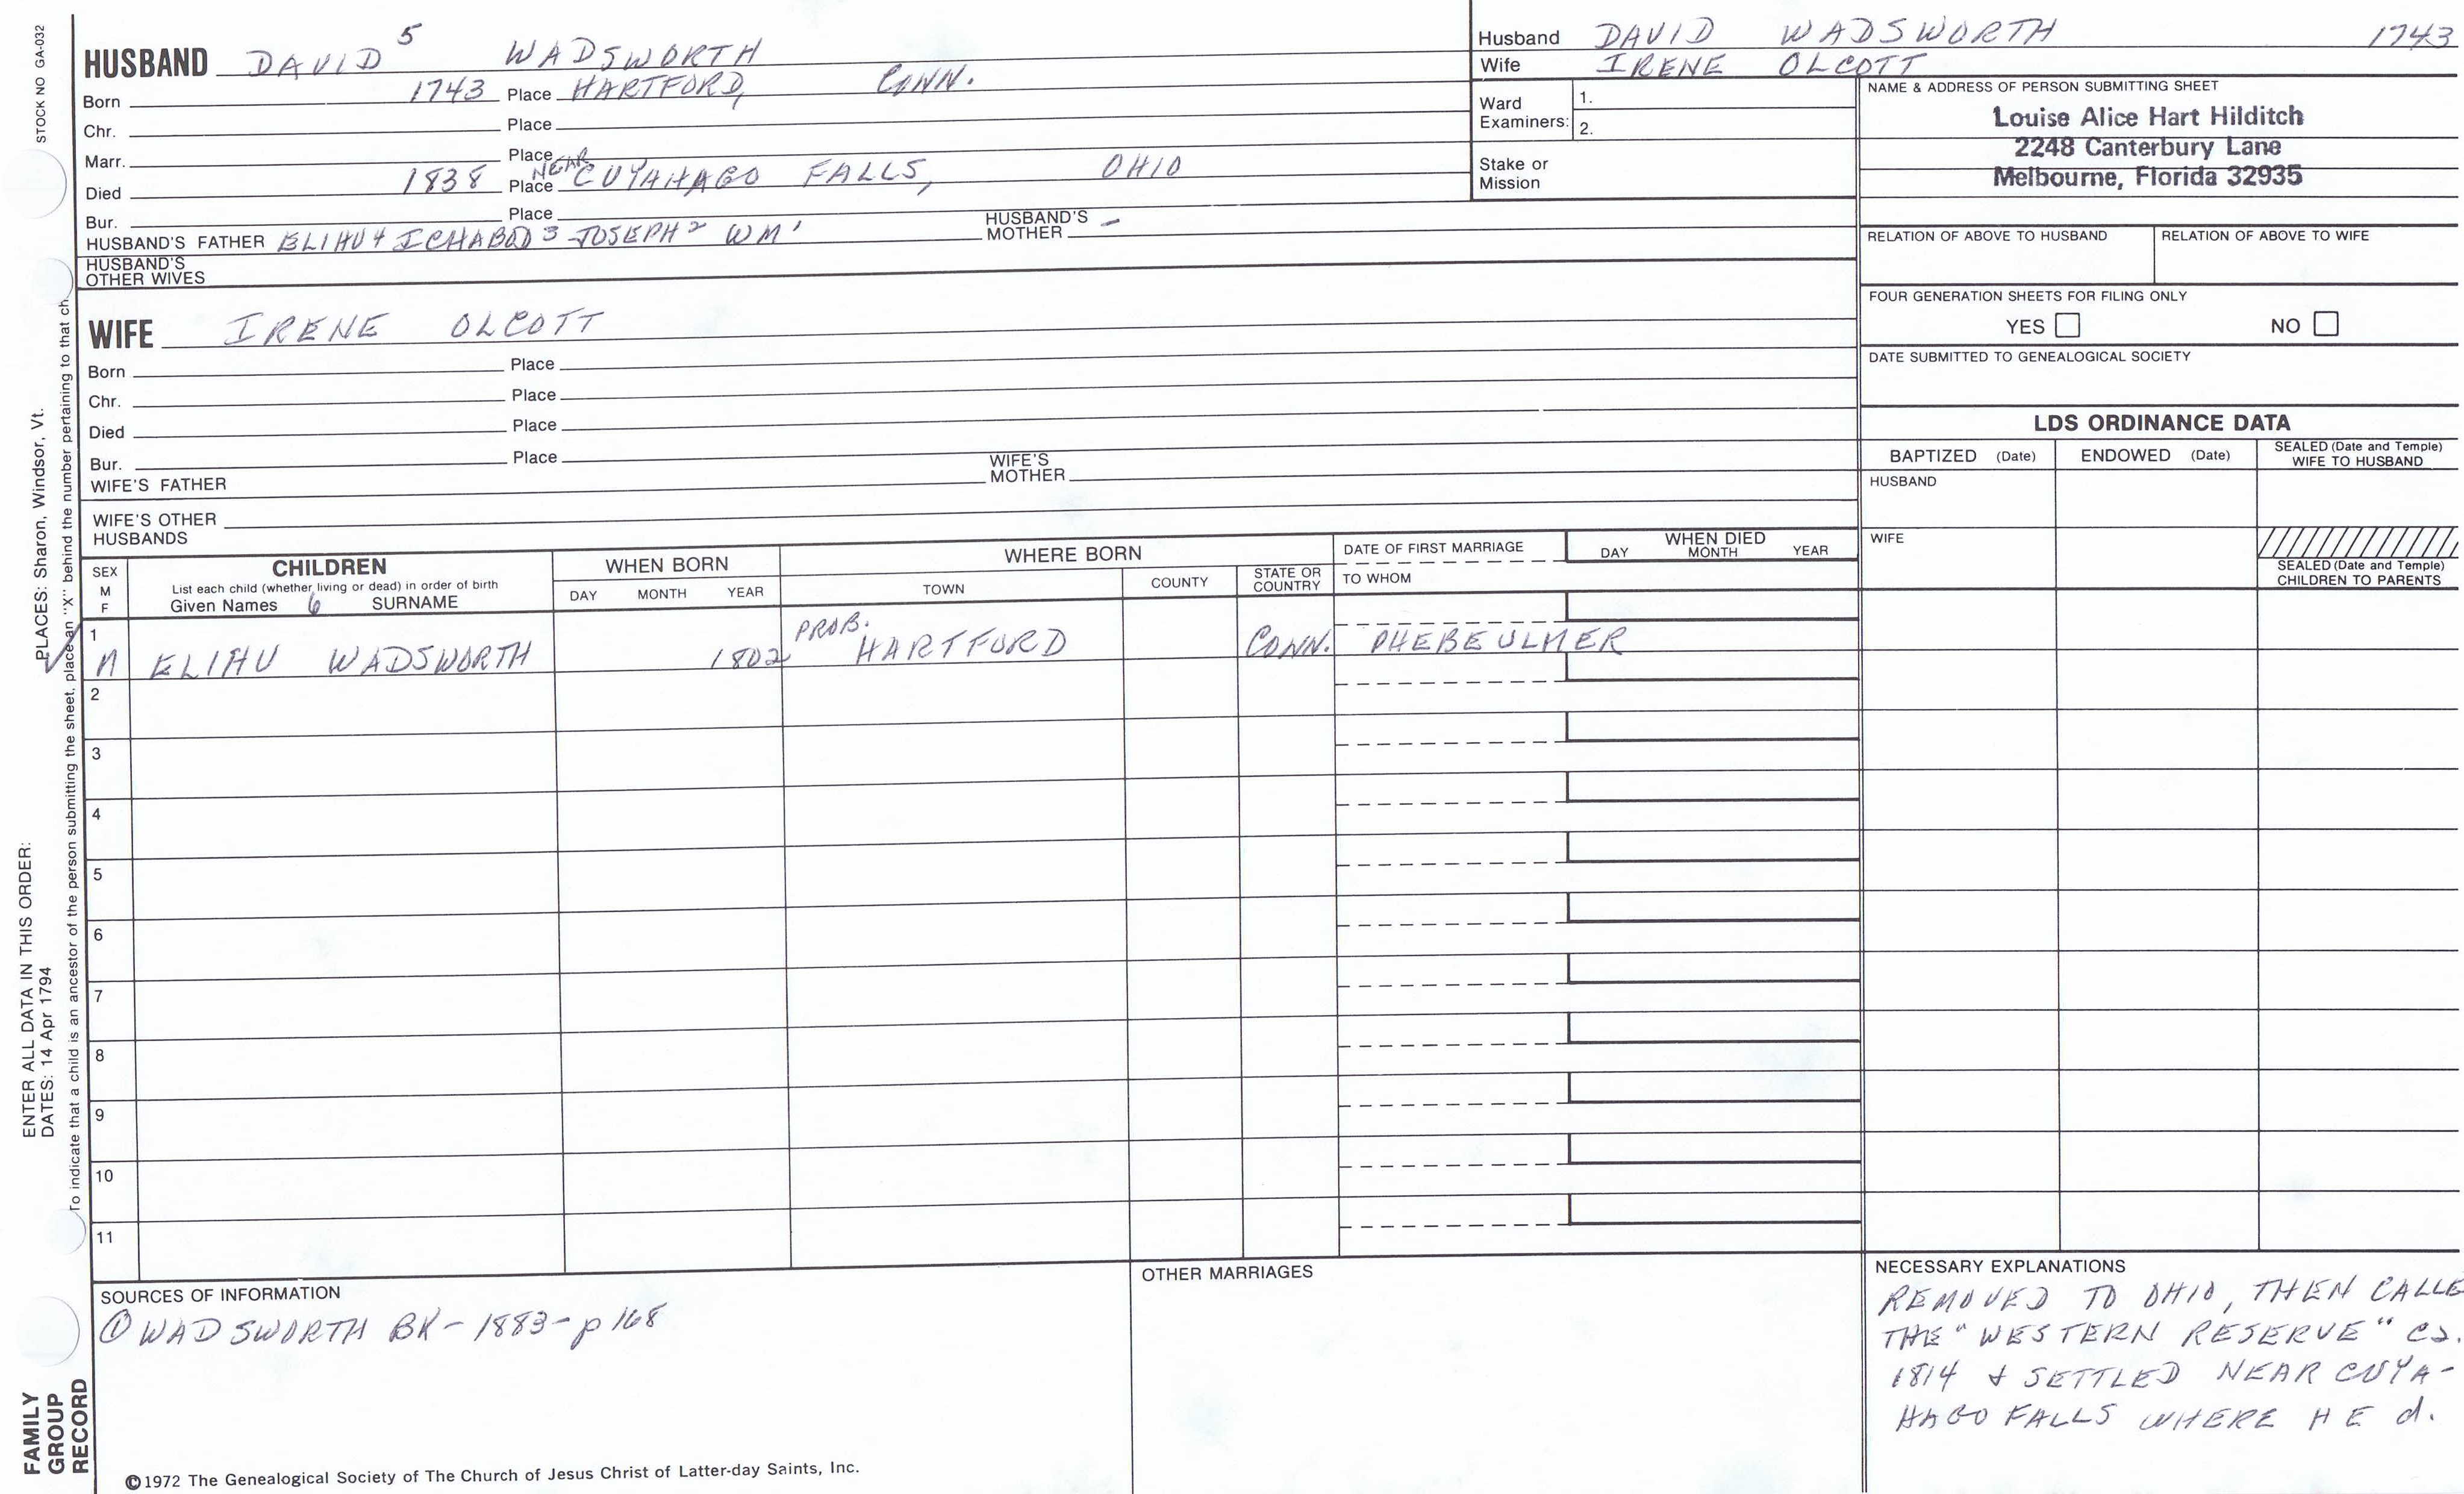 STOCK NO GA-032
HUSBAND DAVID 5 WADSWORTH
Born 1743 Place HARTFORD, CONN.
Chr. Place
Marr. Place
Died 1838 Place NEAR CUYAHAGO FALLS, OHIO
Bur. Place
HUSBAND'S FATHER ELIHU 4 ICHABOD 3 JOSEPH 2 WM 1 HUSBAND'S MOTHER -
HUSBAND'S OTHER WIVES
WIFE IRENE OLCOTT
Born Place
Chr. Place
Died Place
Bur. Place
WIFE'S FATHER WIFE'S MOTHER
WIFE'S OTHER HUSBANDS
Husband DAVID WADSWORTH 1743
Wife IRENE OLCOTT
Ward Examiners: 1.
2.
Stake or Mission
NAME & ADDRESS OF PERSON SUBMITTING SHEET
Louise Alice Hart Hilditch
2248 Canterbury Lane
Melbourne, Florida 32935
RELATION OF ABOVE TO HUSBAND RELATION OF ABOVE TO WIFE
FOUR GENERATION SHEETS FOR FILING ONLY
YES NO
DATE SUBMITTED TO GENEALOGICAL SOCIETY
LDS ORDINANCE DATA
BAPTIZED (Date) ENDOWED (Date) SEALED (Date and Temple) WIFE TO HUSBAND
HUSBAND
WIFE
SEALED (Date and Temple) CHILDREN TO PARENTS
SEX M F
CHILDREN
List each child (whether living or dead) in order of birth
Given Names 6 SURNAME
WHEN BORN
DAY MONTH YEAR
WHERE BORN
TOWN COUNTY STATE OR COUNTRY
DATE OF FIRST MARRIAGE
TO WHOM
WHEN DIED
DAY MONTH YEAR
1 M ELIHU WADSWORTH 1802 PROB. HARTFORD CONN. PHEBE ULMER
2
3
4
5
6
7
8
9
10
11
SOURCES OF INFORMATION
① WADSWORTH BK - 1883 - p 168
OTHER MARRIAGES
NECESSARY EXPLANATIONS
REMOVED TO OHIO, THEN CALLE
THE "WESTERN RESERVE" CA.
1814 & SETTLED NEAR CUYA-
HAGO FALLS WHERE HE d.
©1972 The Genealogical Society of The Church of Jesus Christ of Latter-day Saints, Inc.
FAMILY GROUP RECORD
ENTER ALL DATA IN THIS ORDER:
DATES: 14 Apr 1794
PLACES: Sharon, Windsor, Vt.
To indicate that a child is an ancestor of the person submitting the sheet, place an "X" behind the number pertaining to that ch